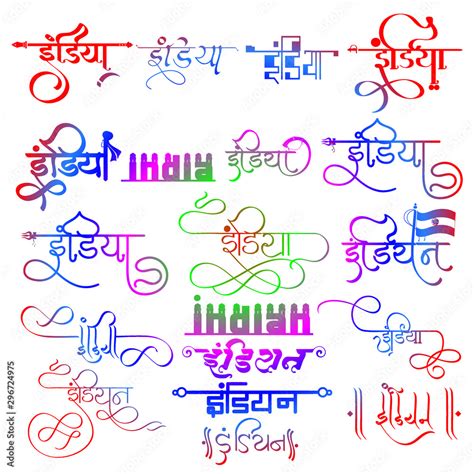 इंडिया इंडिया इंडिया इंडिया
इंडिया indiA इंडिया इंडिया
इंडिया इंडिया इंडियन
indiAn
इंडिया इंडियन इंडिया
इंडियन इंडियन इंडियन
॥इंडियन॥
Adobe Stock | #296724975